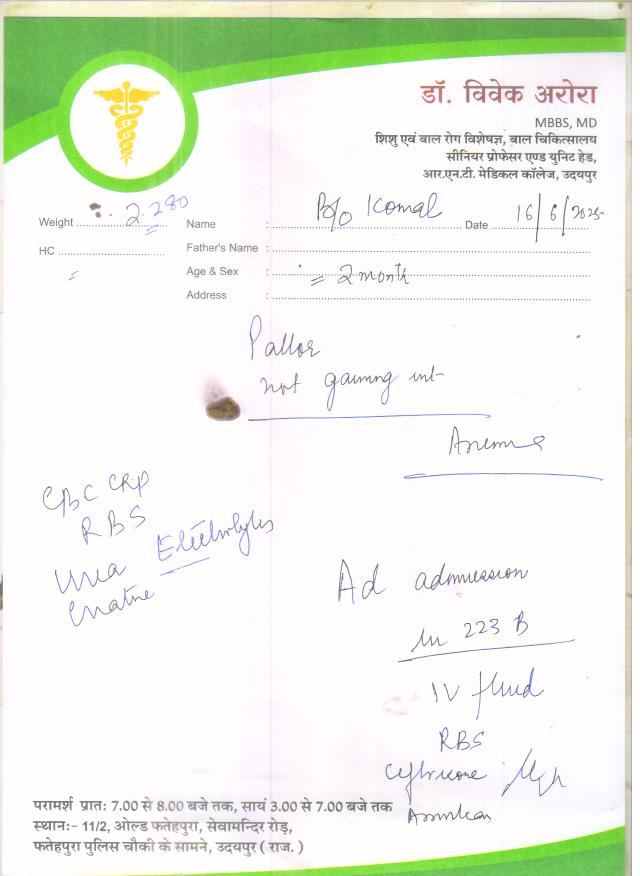 डॉ. विवेक अरोरा
MBBS, MD
शिशु एवं बाल रोग विशेषज्ञ, बाल चिकित्सालय
सीनियर प्रोफेसर एण्ड युनिट हेड,
आर.एन.टी. मेडिकल कॉलेज, उदयपुर
Weight 2.280 Name : B/o Komal Date 16/6/2025
HC Father's Name :
Age & Sex : = 2 month
Address :
Pallor
not gaining wt
Anemia
CBC CRP
RBS
Urea Electrolytes
Creatine
Ad admission
in 223 B
IV fluid
RBS
परामर्श प्रातः 7.00 से 8.00 बजे तक, सायं 3.00 से 7.00 बजे तक
स्थानः- 11/2, ओल्ड फतेहपुरा, सेवामन्दिर रोड़,
फतेहपुरा पुलिस चौकी के सामने, उदयपुर ( राज. )